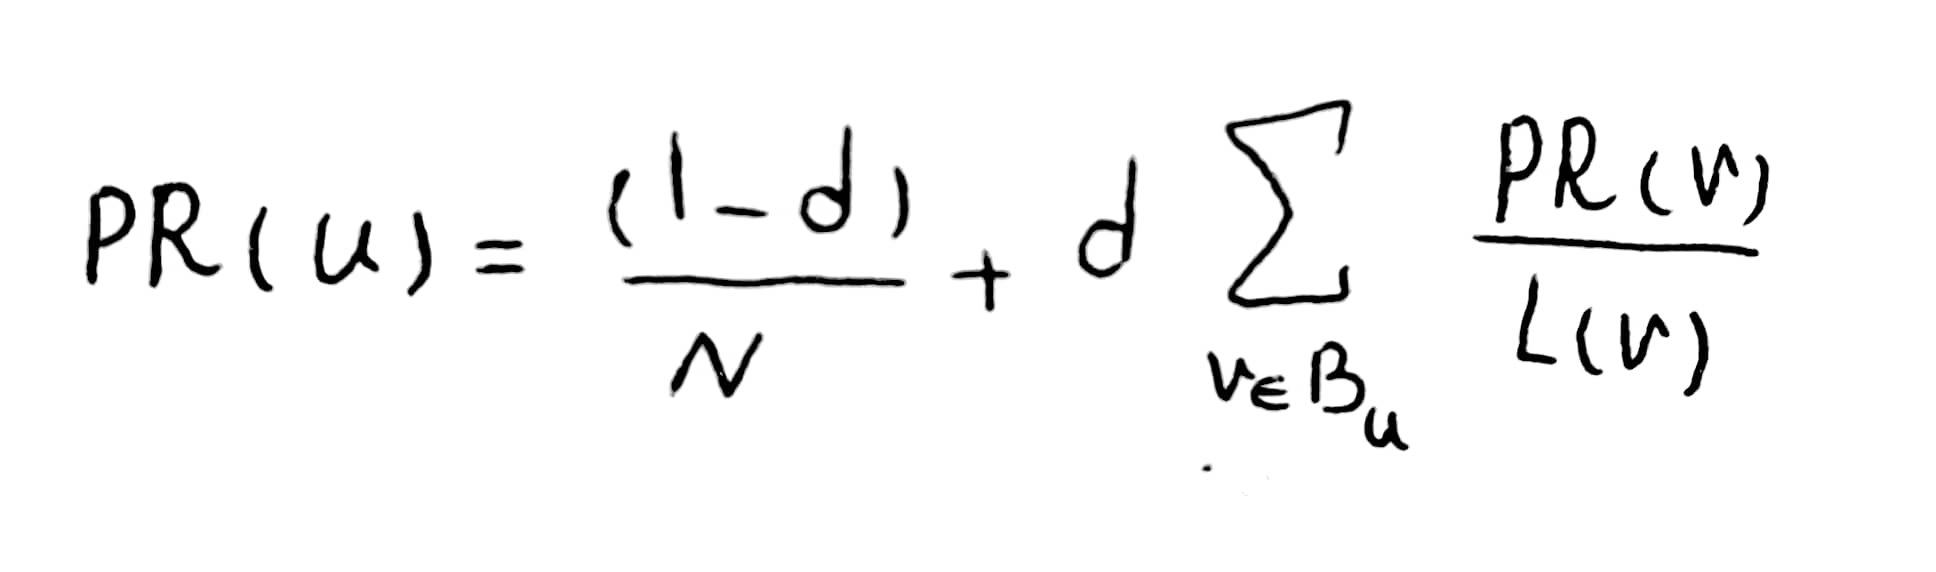 PR(u) = \frac{(1-d)}{N} + d \sum_{v \in B_u} \frac{PR(v)}{L(v)}